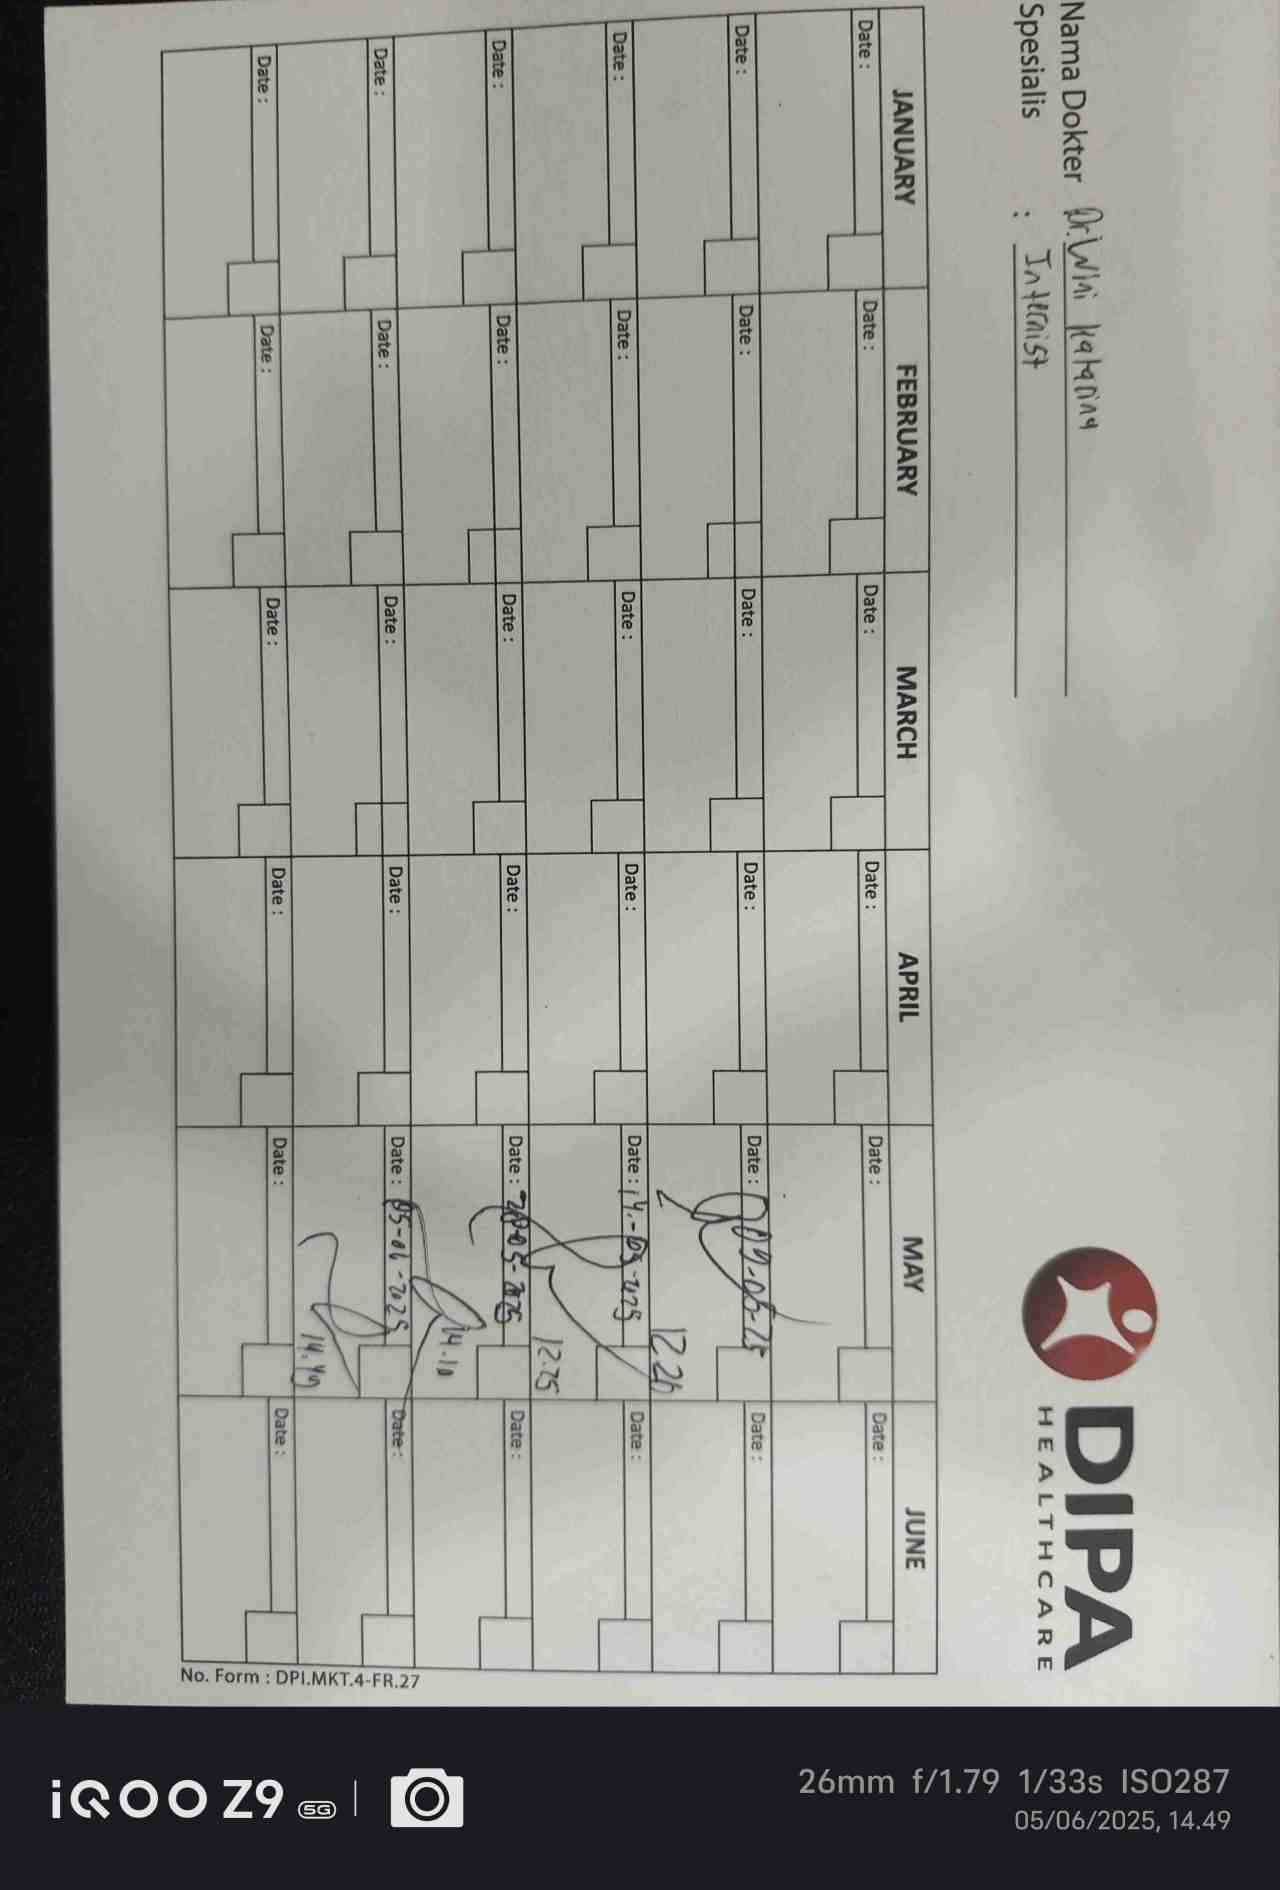 DIPA
HEALTHCARE
Nama Dokter Dr. Wini Katarina
Spesialis : Internist
JANUARY FEBRUARY MARCH APRIL MAY JUNE
Date : Date : Date : Date : Date : Date :
Date : Date : Date : Date : Date : 07-05-25 Date :
12.26
Date : Date : Date : Date : Date : 14.-05-2025 Date :
12.25
Date : Date : Date : Date : Date : 20-05-2025 Date :
14.10
Date : Date : Date : Date : Date : 05-06-2025 Date :
14.49
Date : Date : Date : Date : Date : Date :
No. Form : DPI.MKT.4-FR.27
iQOO Z9 5G
26mm f/1.79 1/33s ISO287
05/06/2025, 14.49